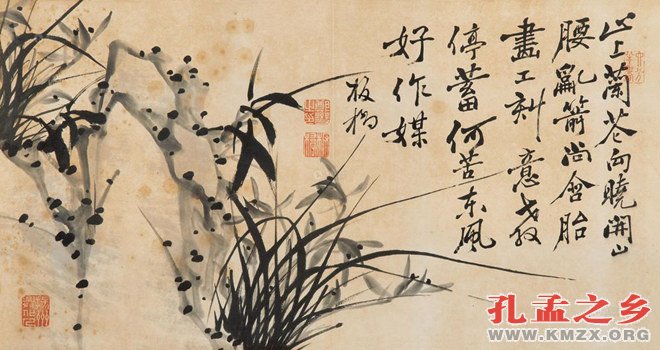 山上蘭花向曉開山
腰亂箭尚含胎
畫工刻意教
停蓄何苦東風
好作媒
板橋
孔孟之乡
WWW.KMZX.ORG